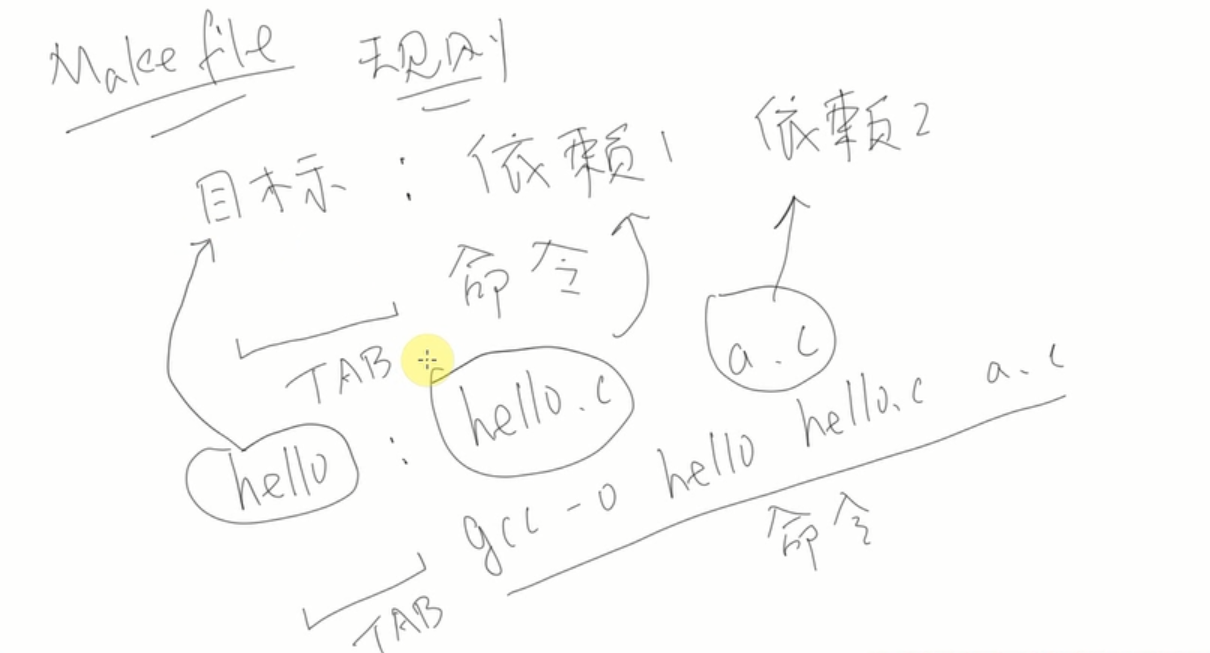 Makefile 规则
目标 : 依赖1 依赖2
命令
TAB
hello : hello.c a.c
gcc -o hello hello.c a.c
TAB
命令